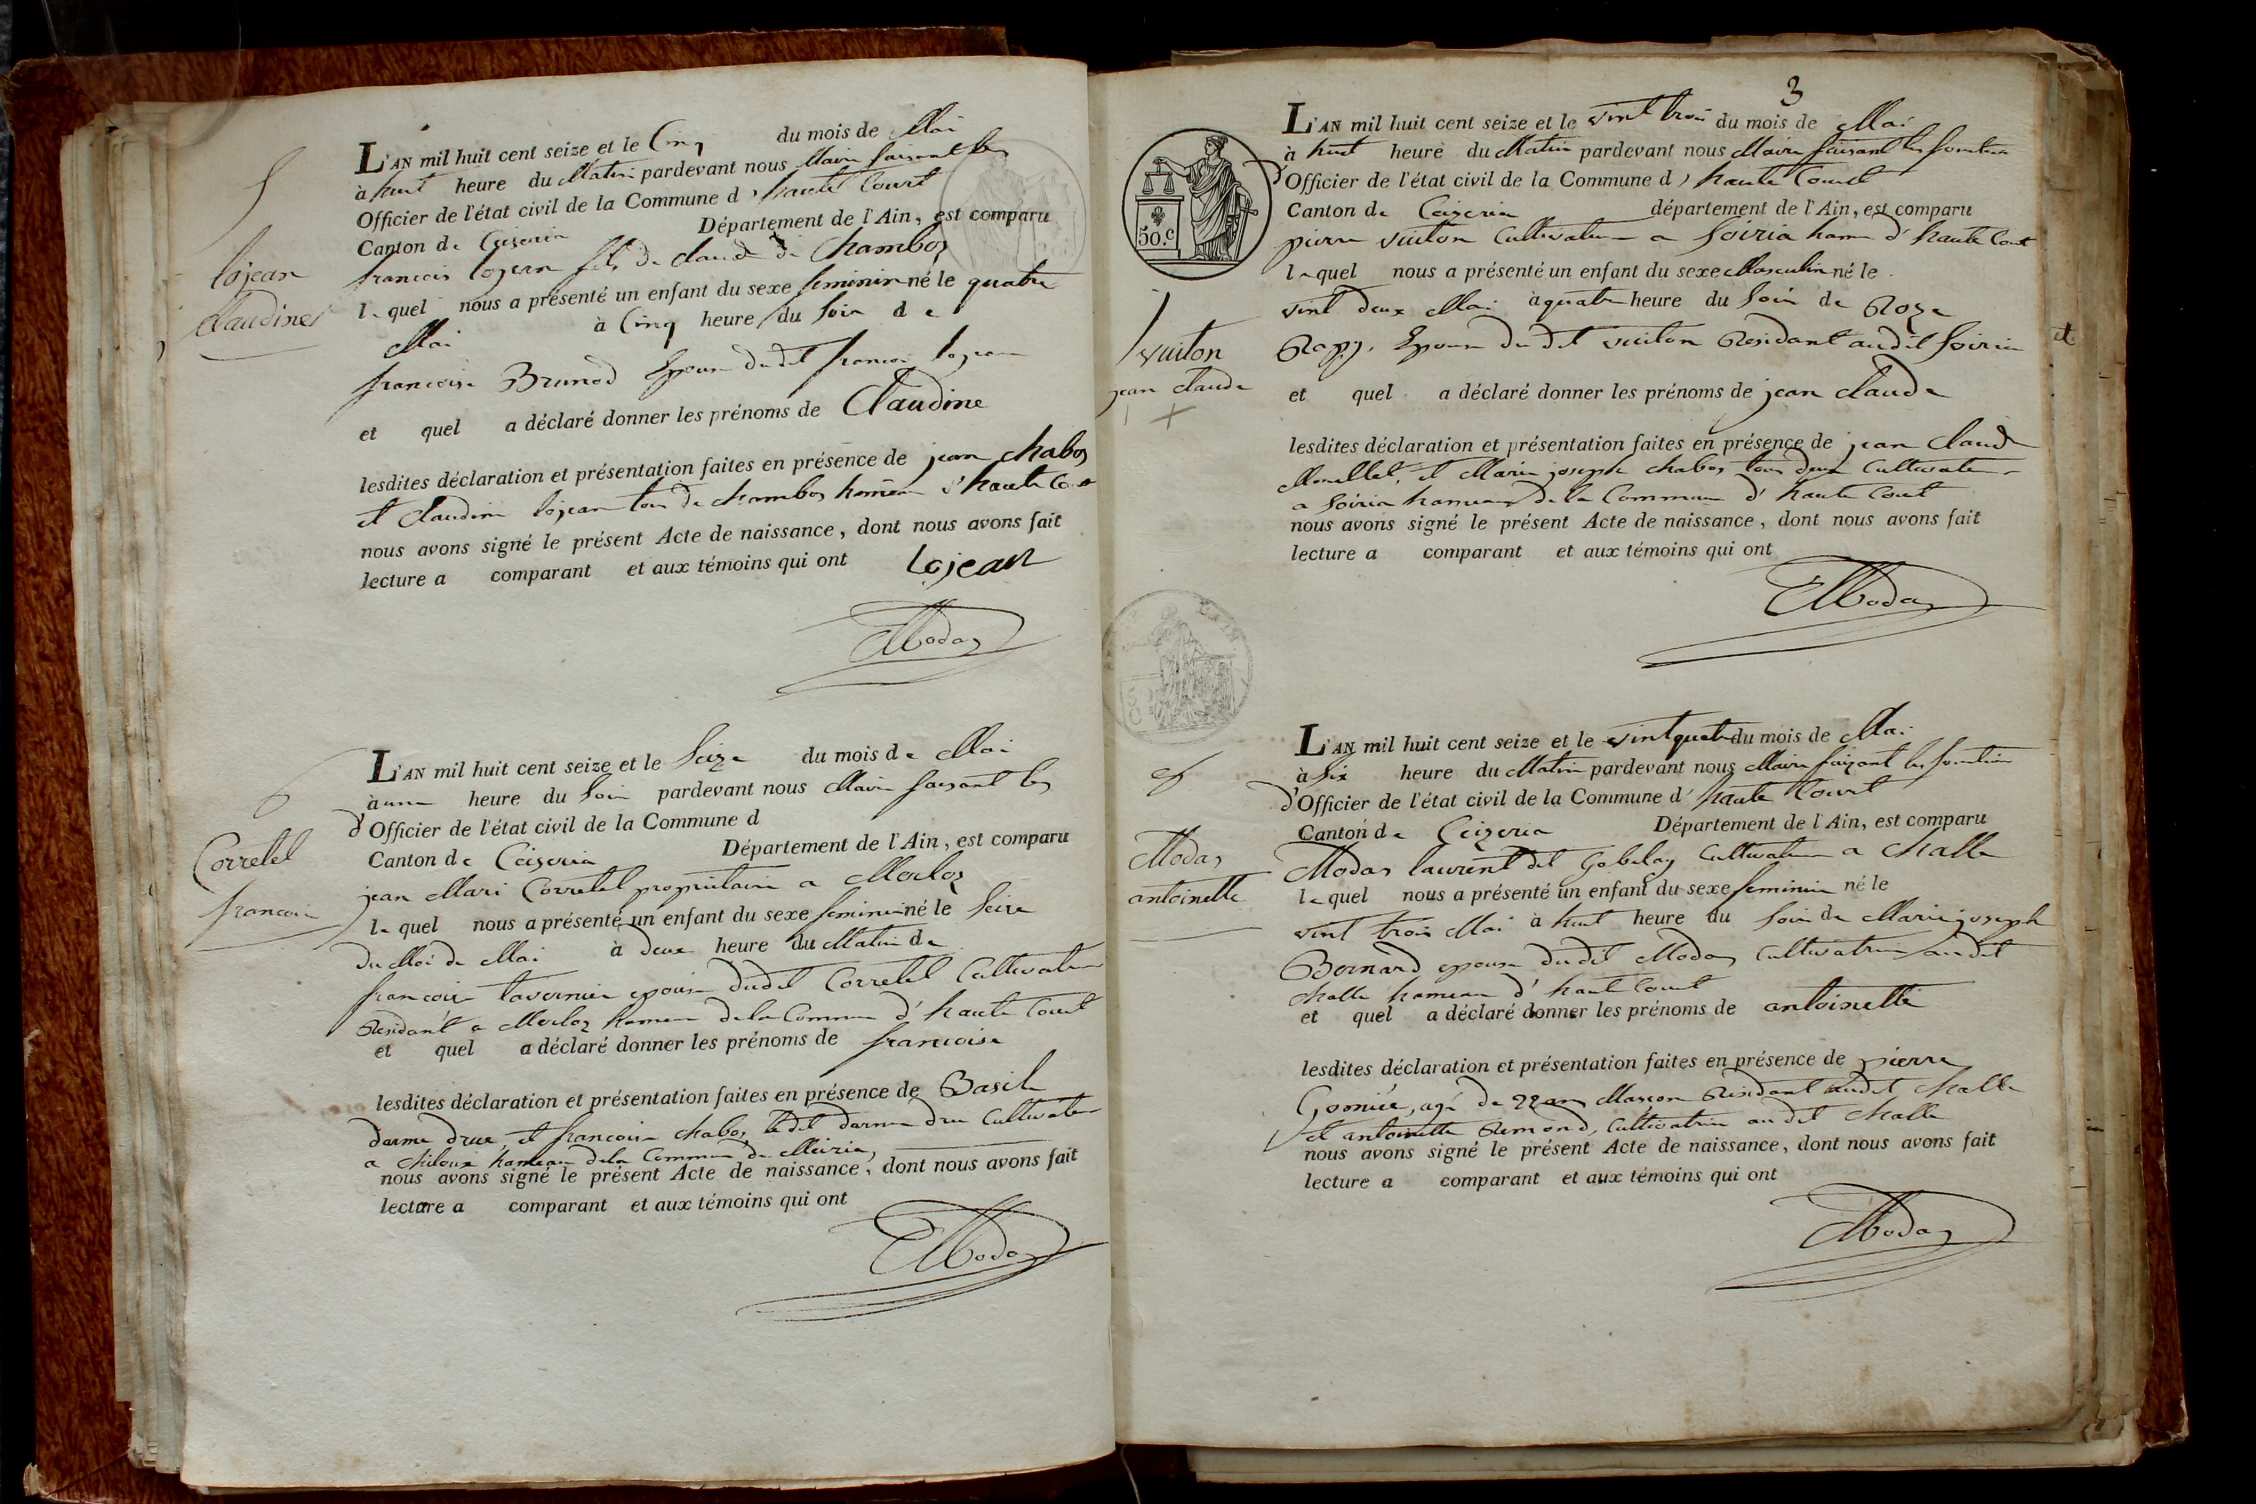 5
lojean
Claudine
L'AN mil huit cent seize et le Cinq du mois de Mai
à huit heure du Matin pardevant nous Maire faisant les
Officier de l'état civil de la Commune d'haute Court
Canton de Ceizeria Département de l'Ain, est comparu
francois lojean fils de claude de Chambos
le quel nous a présenté un enfant du sexe feminin né le quatre
Mai à Cinq heure du soir de
francoise Brunod Epouse dudit francois lojean
et quel a déclaré donner les prénoms de Claudine
lesdites déclaration et présentation faites en présence de jean chabos
et claudine lojean tous de chambos hameau d'haute Court
nous avons signé le présent Acte de naissance, dont nous avons fait
lecture a comparant et aux témoins qui ont lojean
Modas
6
Corretel
francoise
L'AN mil huit cent seize et le Seize du mois de Mai
à une heure du soir pardevant nous Maire faisant les
d'Officier de l'état civil de la Commune d
Canton de Ceizeria Département de l'Ain, est comparu
jean Mari Corretel proprietaire a Merloz
le quel nous a présenté un enfant du sexe feminin né le Seize
du Moi de Mai à deux heure du Matin de
francoise tavernier epouse dudit Corretel Cultivateur
Residant a Merloz hameau de la Commune d'haute Court
et quel a déclaré donner les prénoms de francoise
lesdites déclaration et présentation faites en présence de Basile
darme drue et francoise chabos ledit darme drue Cultivateur
a chiloux hameau de la Commune de Meiria
nous avons signé le présent Acte de naissance, dont nous avons fait
lecture a comparant et aux témoins qui ont
Modas
3
50.c
vuiton
jean claude
L'AN mil huit cent seize et le vint trois du mois de Mai
à huit heure du Matin pardevant nous Maire faisant les fonction
d'Officier de l'état civil de la Commune d'haute Court
Canton de Ceizeria département de l'Ain, est comparu
pierre vuiton Cultivateur a Soiria hameau d'haute Court
le quel nous a présenté un enfant du sexe Masculin né le
vint deux Mai à quatre heure du Soir de Roze
Rapy Epouse du dit vuiton Residant audit Soiria
et quel a déclaré donner les prénoms de jean claude
lesdites déclaration et présentation faites en présence de jean claude
Mouillet, et Marie joseph chabos tous deux Cultivateur
a Soiria hameau de la Commune d'haute Court
nous avons signé le présent Acte de naissance, dont nous avons fait
lecture a comparant et aux témoins qui ont
Modas
Modas
antoinette
L'AN mil huit cent seize et le vint quatre du mois de Mai
à Six heure du Matin pardevant nous Maire faizant les fonction
d'Officier de l'état civil de la Commune d'haute Court
Canton de Ceizeria Département de l'Ain, est comparu
Modas laurent dit Gobelay Cultivateur a challe
le quel nous a présenté un enfant du sexe feminin né le
vint trois Mai à huit heure du Soir de Marie joseph
Bernard epouse dudit Modas Cultivatrice audit
challe hameau d'haute Court
et quel a déclaré donner les prénoms de antoinette
lesdites déclaration et présentation faites en présence de pierre
agé de 22 ans Masson Residant audit challe
et antoinette Remond, Cultivatrice audit challe
nous avons signé le présent Acte de naissance, dont nous avons fait
lecture a comparant et aux témoins qui ont
Modas